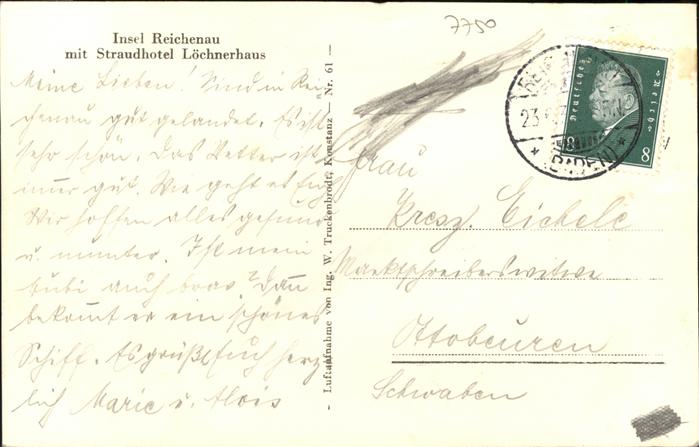 7750
Insel Reichenau
mit Straudhotel Löchnerhaus
Meine Lieben! Sind in Rei
chenau gut gelandet. Es ist
sehr schön. Das Wetter ist
immer gut. Wie geht es Euch
Wir hoffen alles gesund
u. munter. Ist mein
bubi auch brav? Dann
bekommt er ein schönes
Schiff. Es grüßt Euch herz
lich Marie u. Alois
- Luftaufnahme von Ing. W. Truckenbrodt, Konstanz - Nr. 61 -
Deutsches Reich
8 8
23
(BADEN)
Frau
Kresz. Eichele
Marktschreiberswitwe
Ottobeuren
Schwaben